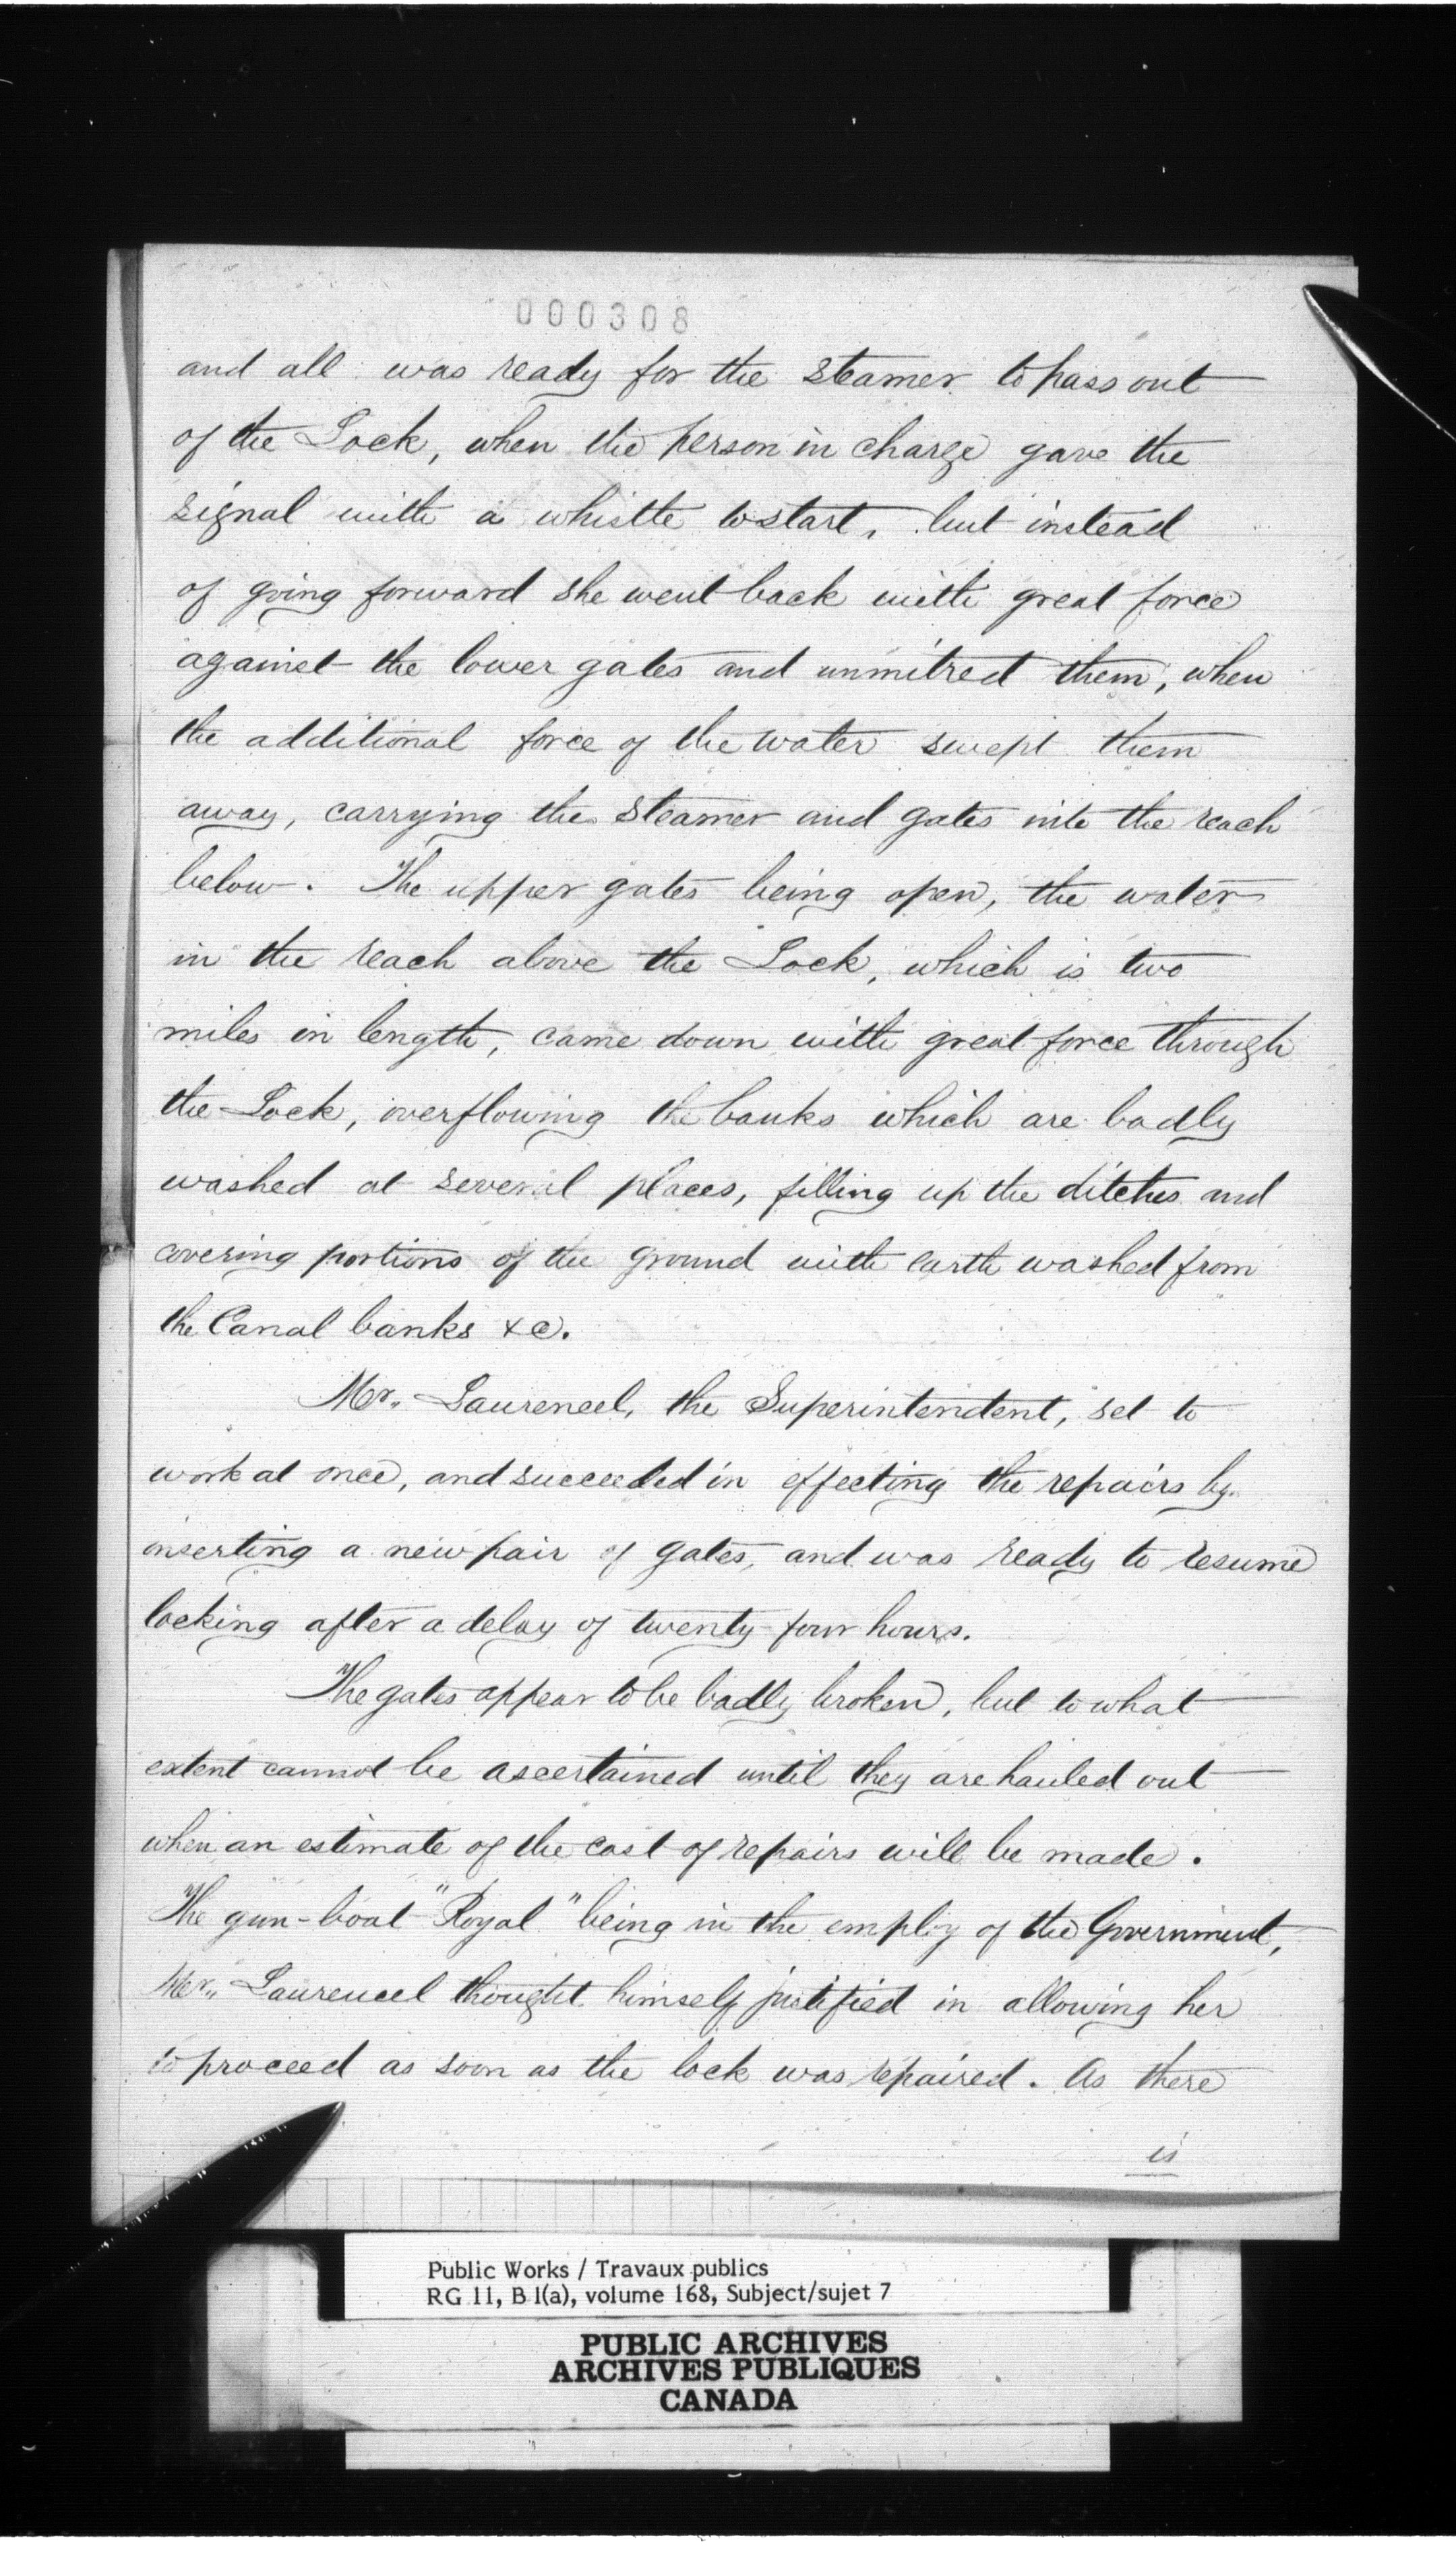 000308
and all was ready for the steamer to pass out
of the Lock, when the person in charge gave the
signal with a whistle to start, but instead
of going forward she went back with great force
against the lower gates and unmitred them, when
the additional force of the water swept them
away, carrying the steamer and gates into the reach
below. The upper gates being open, the water
in the reach above the Lock, which is two
miles in length, came down with great force through
the Lock, overflowing the banks which are badly
washed at several places, filling up the ditches and
covering portions of the ground with earth washed from
the Canal banks &c.
Mr. Laurencel, the Superintendent, set to
work at once, and succeeded in effecting the repairs by
inserting a new pair of gates, and was ready to resume
locking after a delay of twenty-four hours.
The gates appear to be badly broken, but to what
extent cannot be ascertained until they are hauled out
when an estimate of the cost of repairs will be made.
The gun-boat "Royal" being in the employ of the Government,
Mr. Laurencel thought himself justified in allowing her
to proceed as soon as the lock was repaired. As there
is
Public Works / Travaux publics
RG 11, B 1(a), volume 168, Subject/sujet 7
PUBLIC ARCHIVES
ARCHIVES PUBLIQUES
CANADA